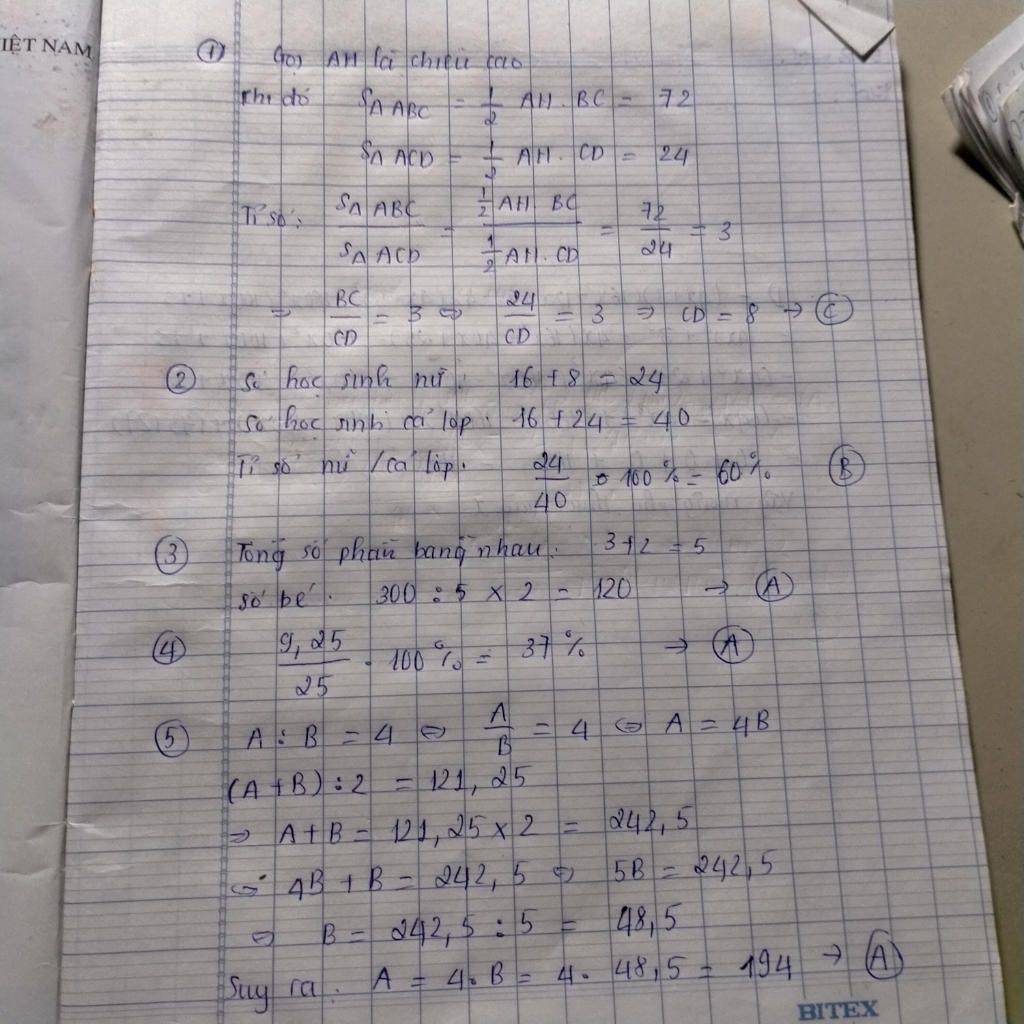 IỆT NAM
① Gọi AH là chiều cao
Khi đó S∆ABC = 1/2 AH . BC = 72
S∆ACD = 1/2 AH . CD = 24
Tỉ số: S∆ABC / S∆ACD = 1/2 AH BC / 1/2 AH . CD = 72/24 = 3
⇒ BC/CD = 3 ⇔ 24/CD = 3 ⇒ CD = 8 → Ⓒ
② Số học sinh nữ: 16 + 8 = 24
Số học sinh cả lớp: 16 + 24 = 40
Tỉ số nữ / cả lớp: 24/40 . 100% = 60% Ⓑ
③ Tổng số phần bằng nhau: 3 + 2 = 5
số bé: 300 : 5 × 2 = 120 → Ⓐ
④ 9,25/25 . 100% = 37% → Ⓐ
⑤ A : B = 4 ⇔ A/B = 4 ⇔ A = 4B
(A + B) : 2 = 121,25
⇒ A + B = 121,25 × 2 = 242,5
⇔ 4B + B = 242,5 ⇔ 5B = 242,5
⇔ B = 242,5 : 5 = 48,5
Suy ra: A = 4.B = 4. 48,5 = 194 → Ⓐ
BITEX